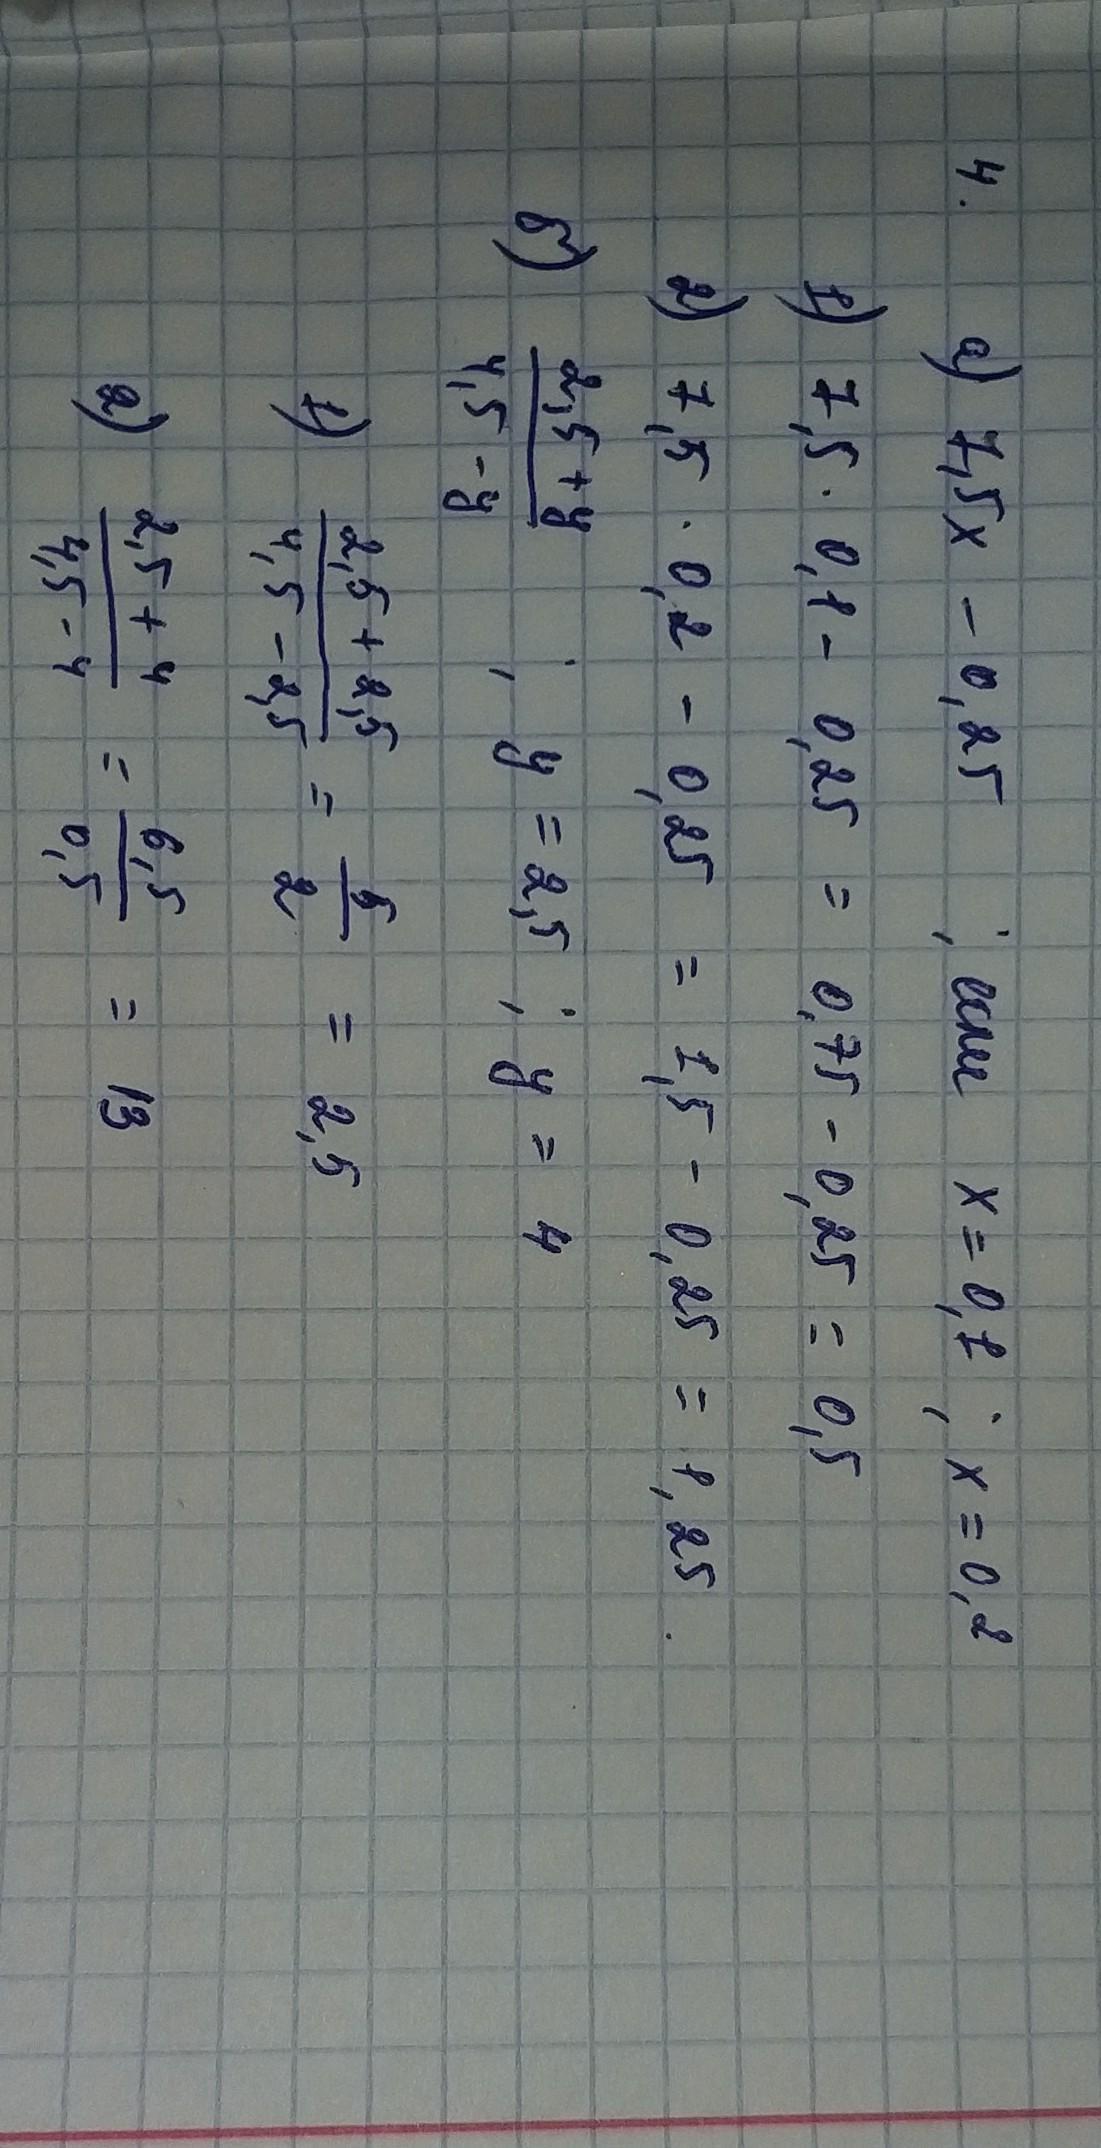 4. а) 7,5x - 0,25 ; если x = 0,1 ; x = 0,2
1) 7,5 · 0,1 - 0,25 = 0,75 - 0,25 = 0,5
2) 7,5 · 0,2 - 0,25 = 1,5 - 0,25 = 1,25.
б) (2,5 + y)/(4,5 - y) ; y = 2,5 ; y = 4
1) (2,5 + 2,5)/(4,5 - 2,5) = 5/2 = 2,5
2) (2,5 + 4)/(4,5 - 4) = 6,5/0,5 = 13